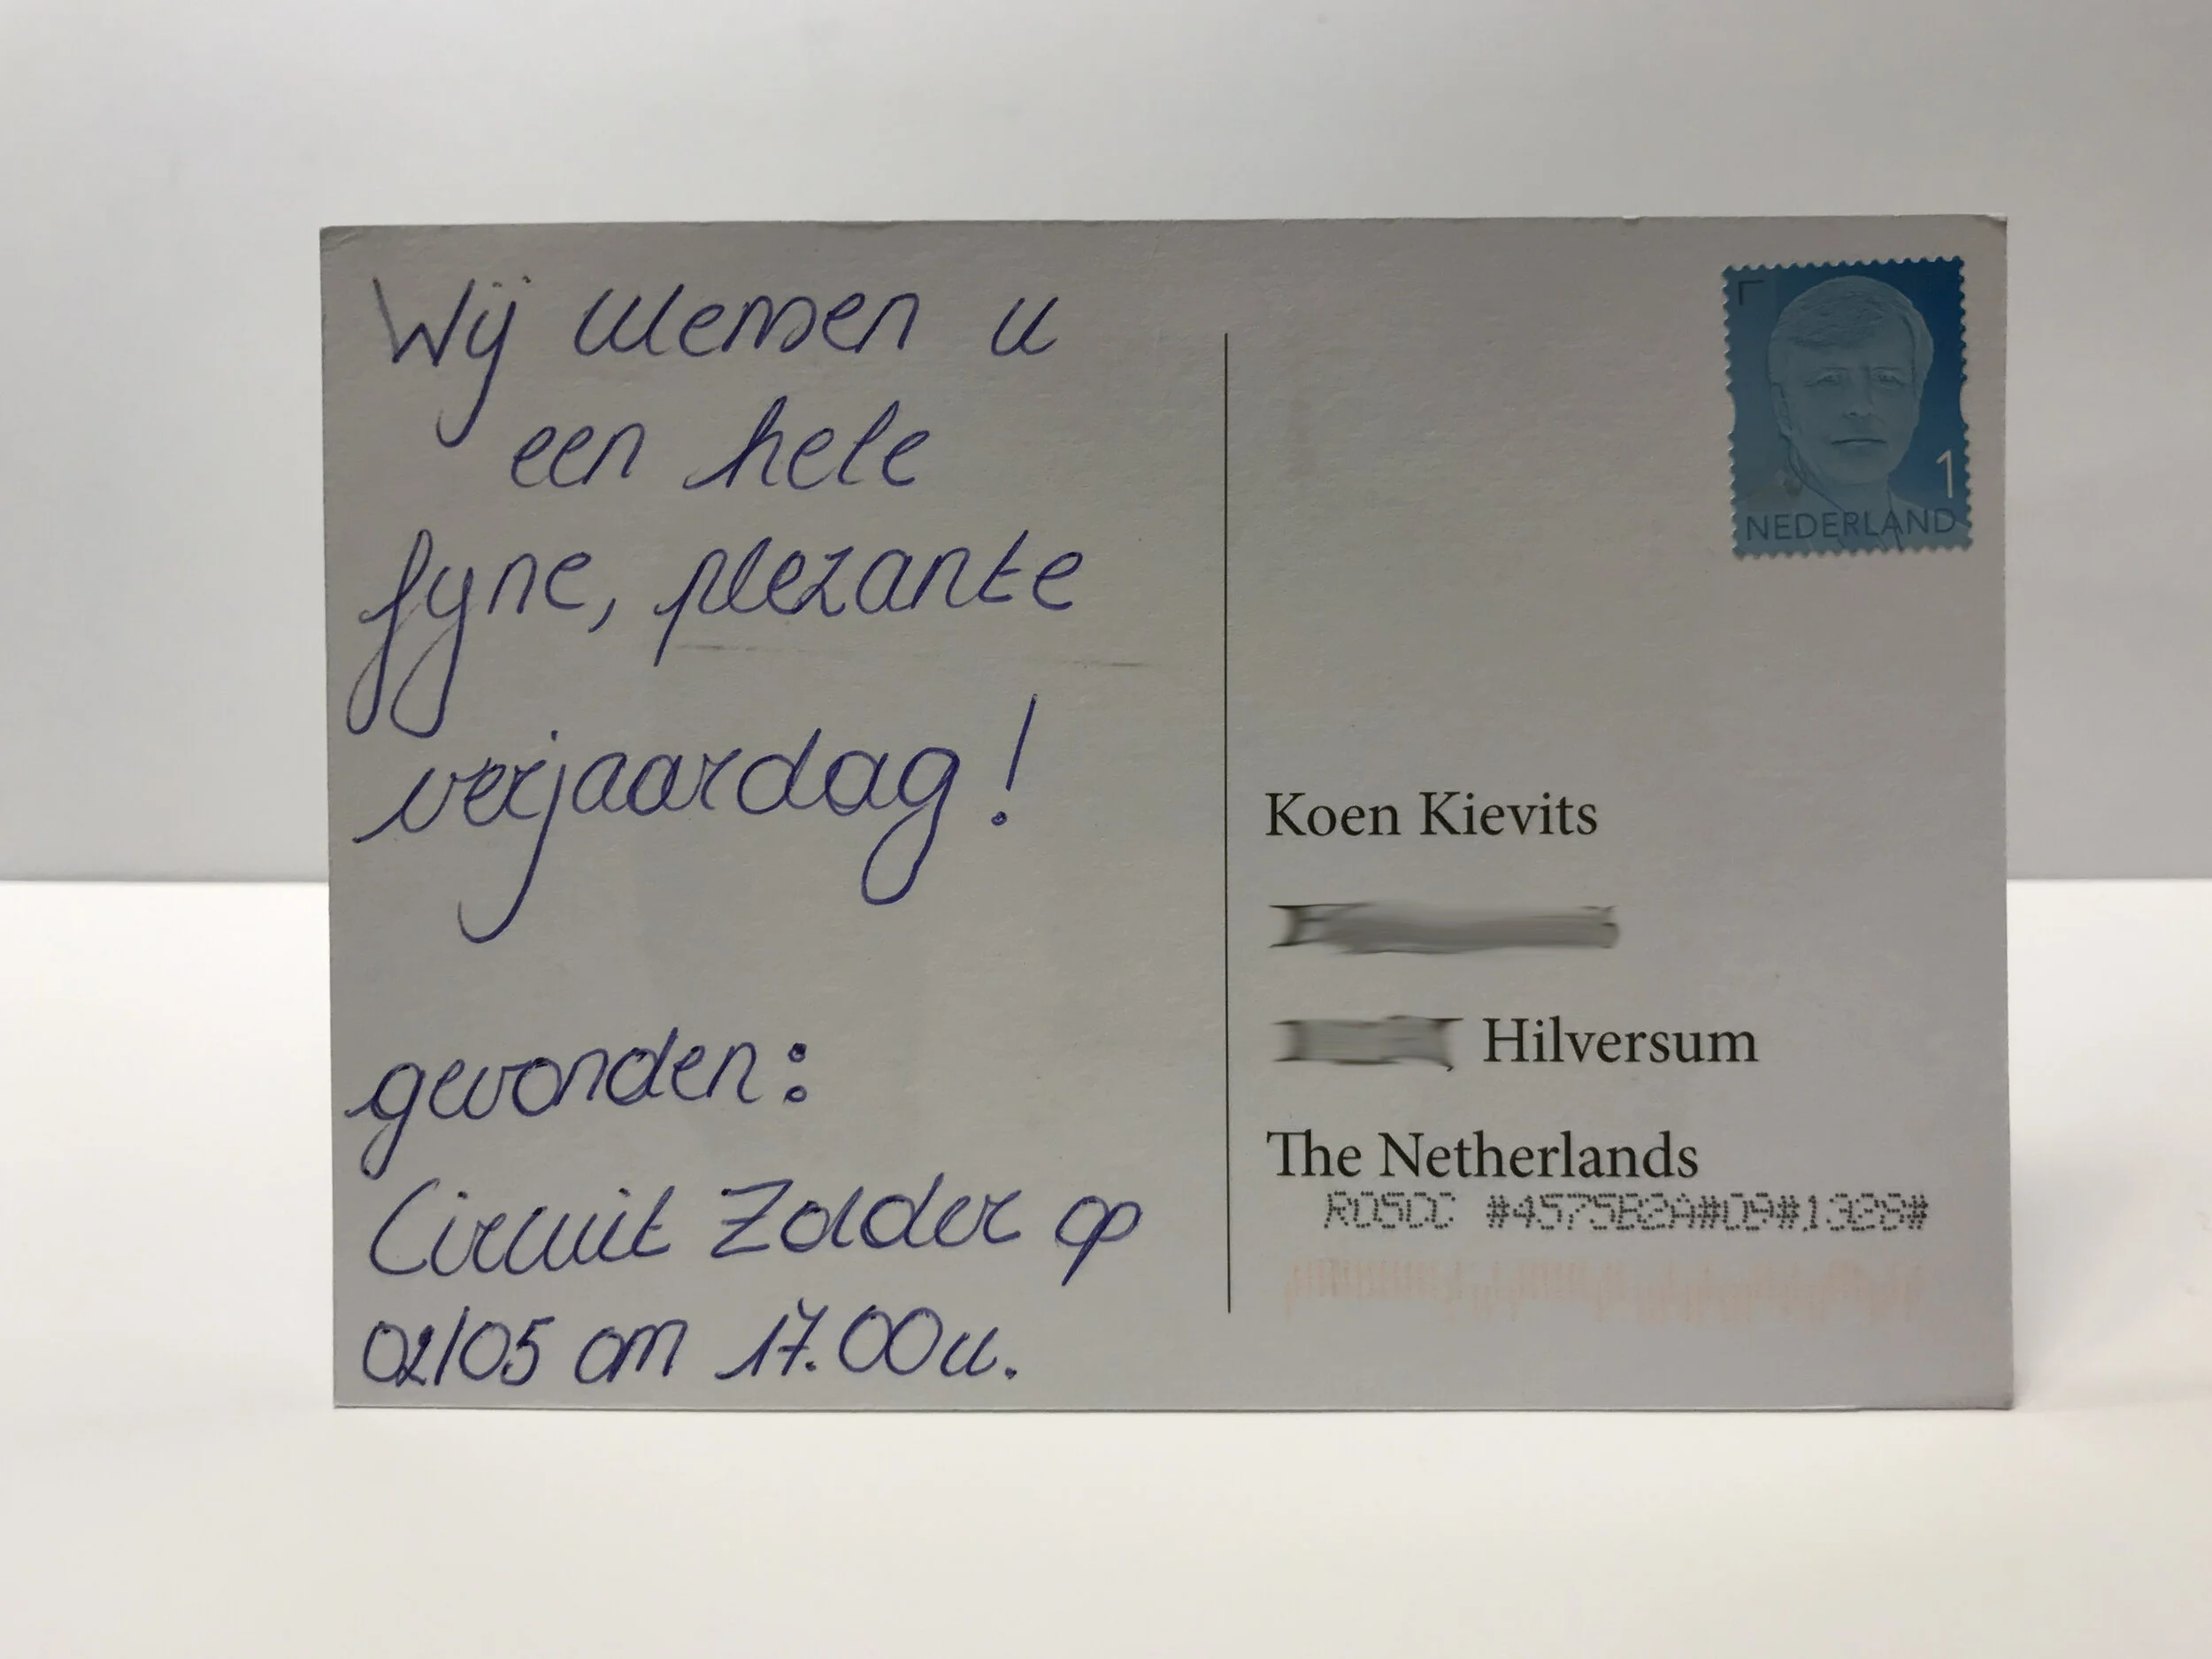 Wij wensen u
een hele
fyne, plezante
verjaardag!
gevonden:
Circuit Zolder op
02/05 om 17.00u.
1
NEDERLAND
Koen Kievits
Hilversum
The Netherlands
R05CC #4575B2A#09#1328#